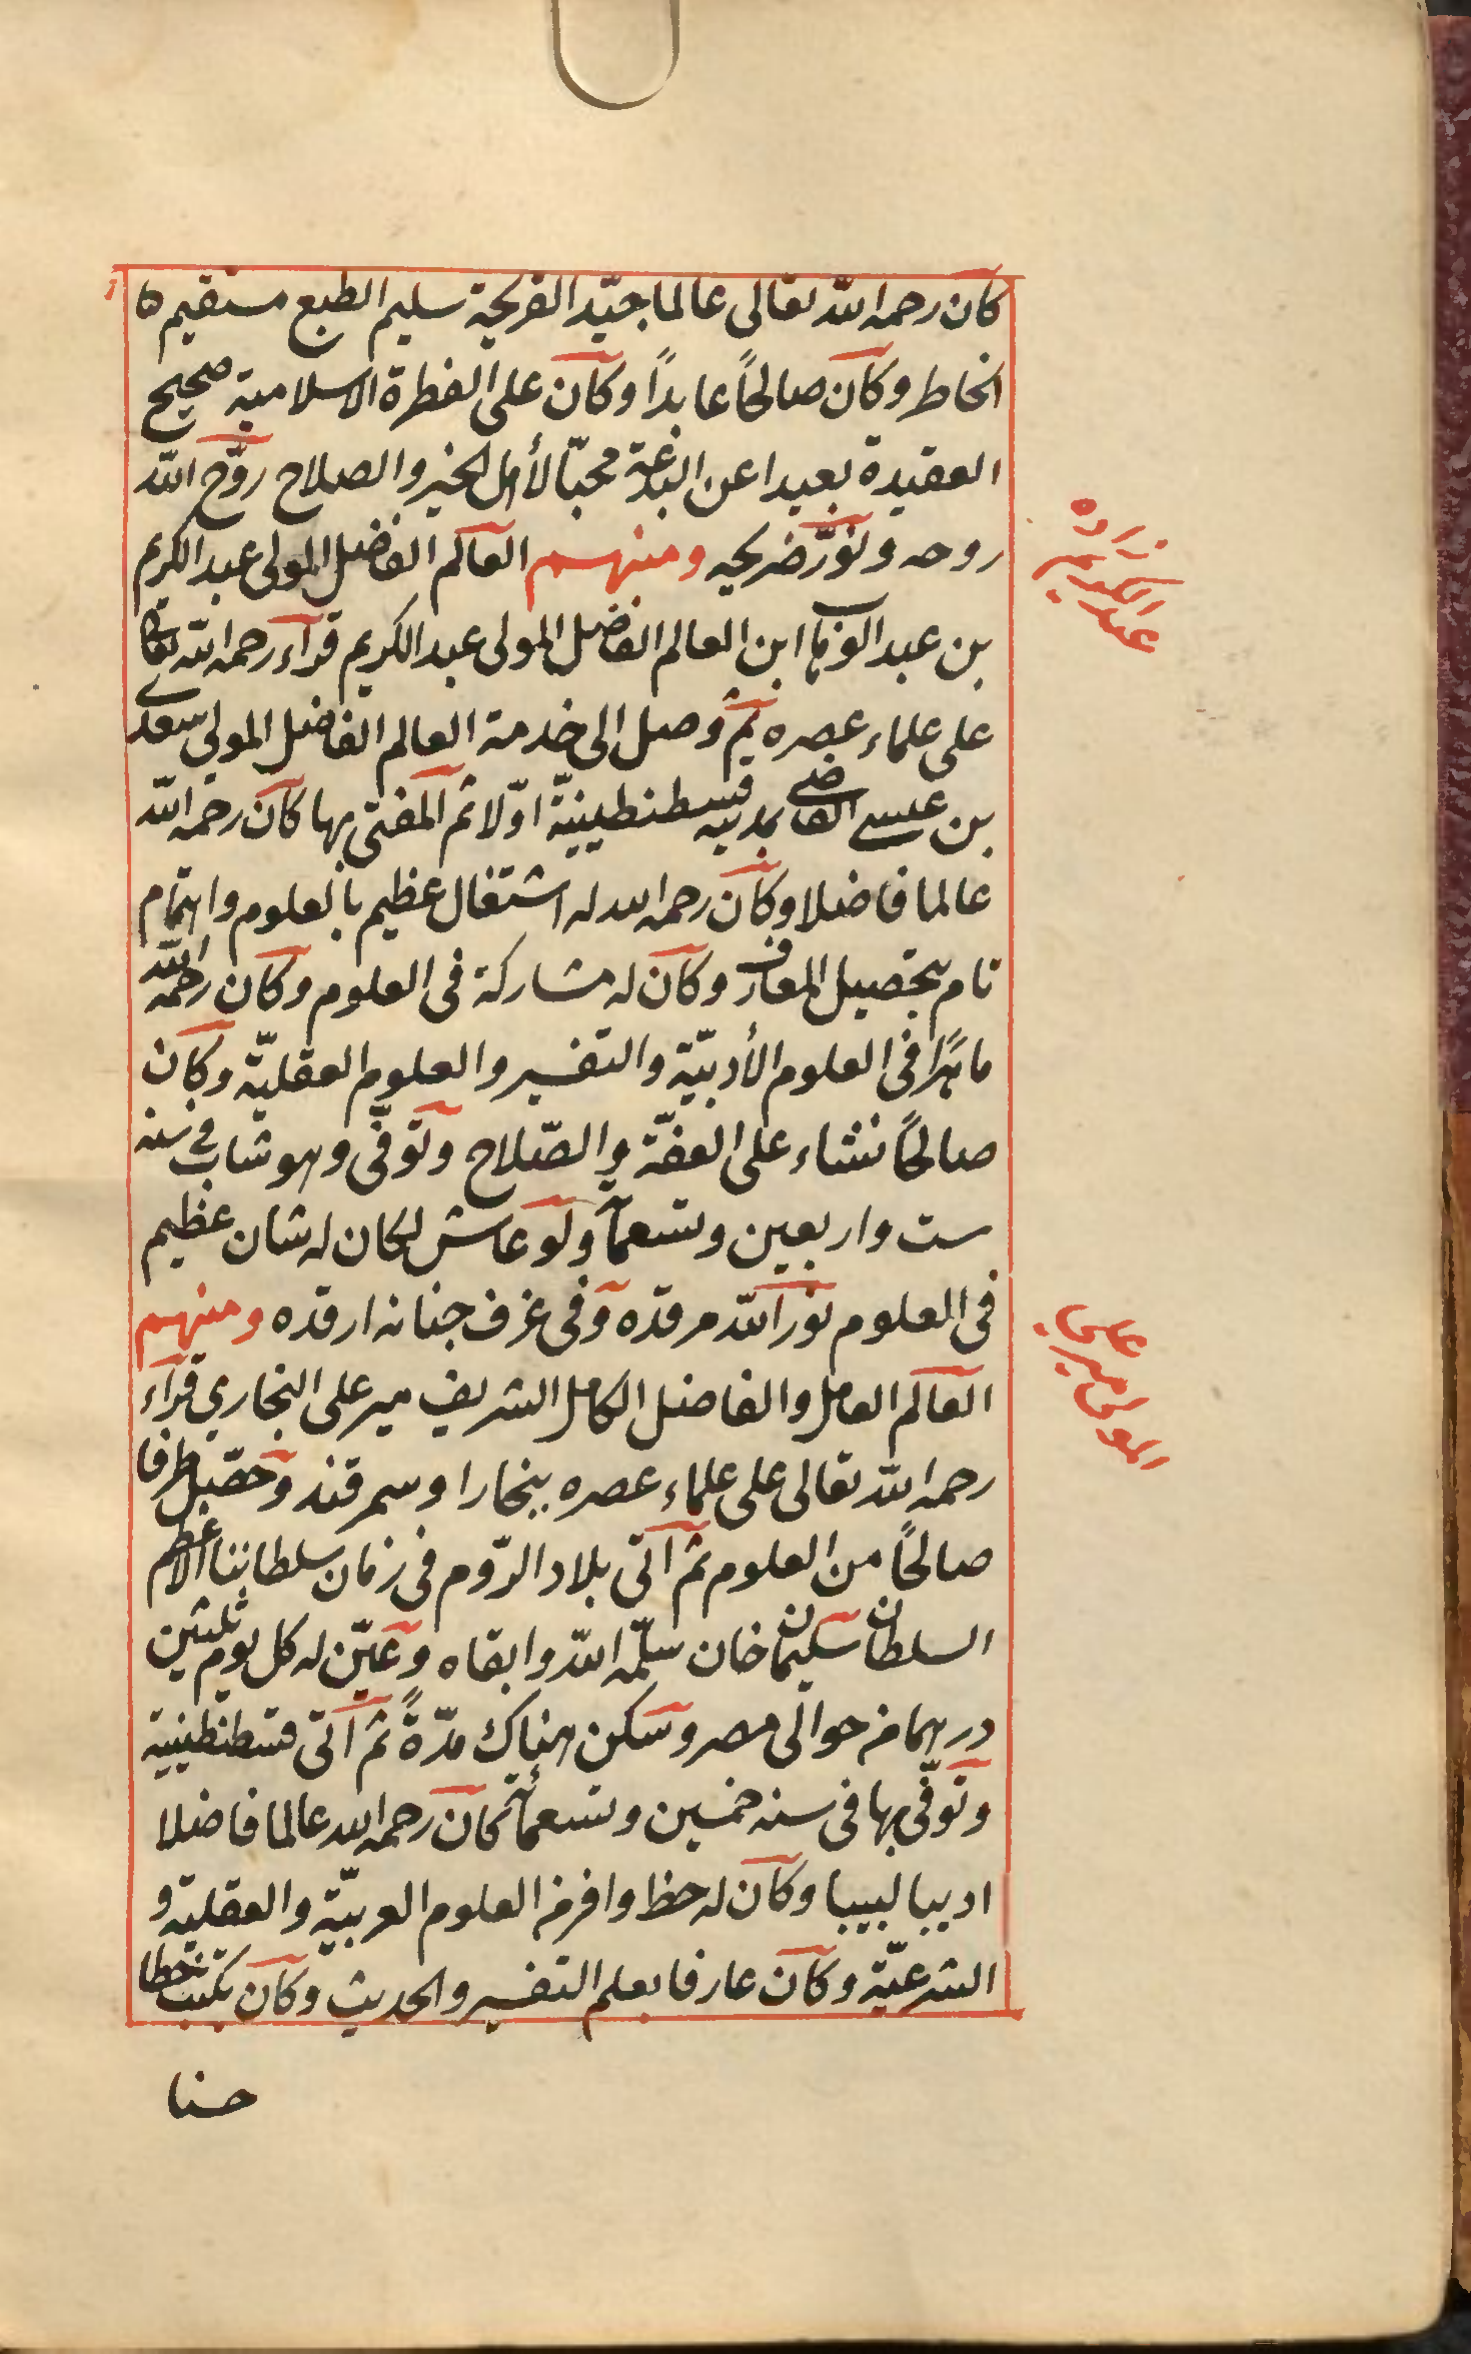 كان رحمه الله تعالى عالما جيّد القريحة سليم الطبع مستقيم
الخاطر وكان صالحاً عابداً وكان على الفطرة الاسلامية صحيح
العقيدة بعيدا عن البدعة محبّا لأهل الخير والصلاح روّح الله
روحه ونوّر ضريحه ومنهم العالم الفاضل المولى عبد الكريم
عبد الكريم زاده
بن عبد الوهاب ابن العالم الفاضل المولى عبد الكريم قرآء رحمه الله تعالى
على علماء عصره ثم وصل الى خدمة العالم الفاضل المولى سعدى
بن عيسى القاضى بمدينه قسطنطينيّة اوّلا ثم المفتى بها كان رحمه الله
عالما فاضلا وكان رحمه الله له اشتغال عظيم بالعلوم واهتمام
تام بتحصيل المعارف وكان له مشاركة فى العلوم وكان رحمه الله
ماهرًا فى العلوم الأدبيّة والتفسير والعلوم العقليّة وكان
صالحاً نشاء على العفّة والصّلاح وتوفّى وهو شاب فى سنه
ست واربعين وتسعمأ ولو عاش لكان له شان عظيم
فى العلوم نور الله مرقده وفى غرف جنانه ارقده ومنهم
المولى مير على
العالم العامل والفاضل الكامل الشريف مير على البخاري قرآء
رحمه الله تعالى على علماء عصره ببخارا وسمرقند وحصّل طرفا
صالحاً من العلوم ثم آتى بلاد الرّوم فى زمان سلطاننا الاعظم
السلطان سليمان خان سلّمه الله وابقاه وعيّن له كل يوم ثلثين
درهما من حوالى مصر وسكن هناك مدّةً ثم آتى قسطنطينية
وتوفّى بها فى سنه خمسين وتسعمأئة كان رحمه الله عالما فاضلا
اديبا لبيبا وكان له حظ وافر من العلوم العربيّة والعقلية و
الشرعيّة وكان عارفا بعلم التفسير والحديث وكان يكتب خطا
حسنا